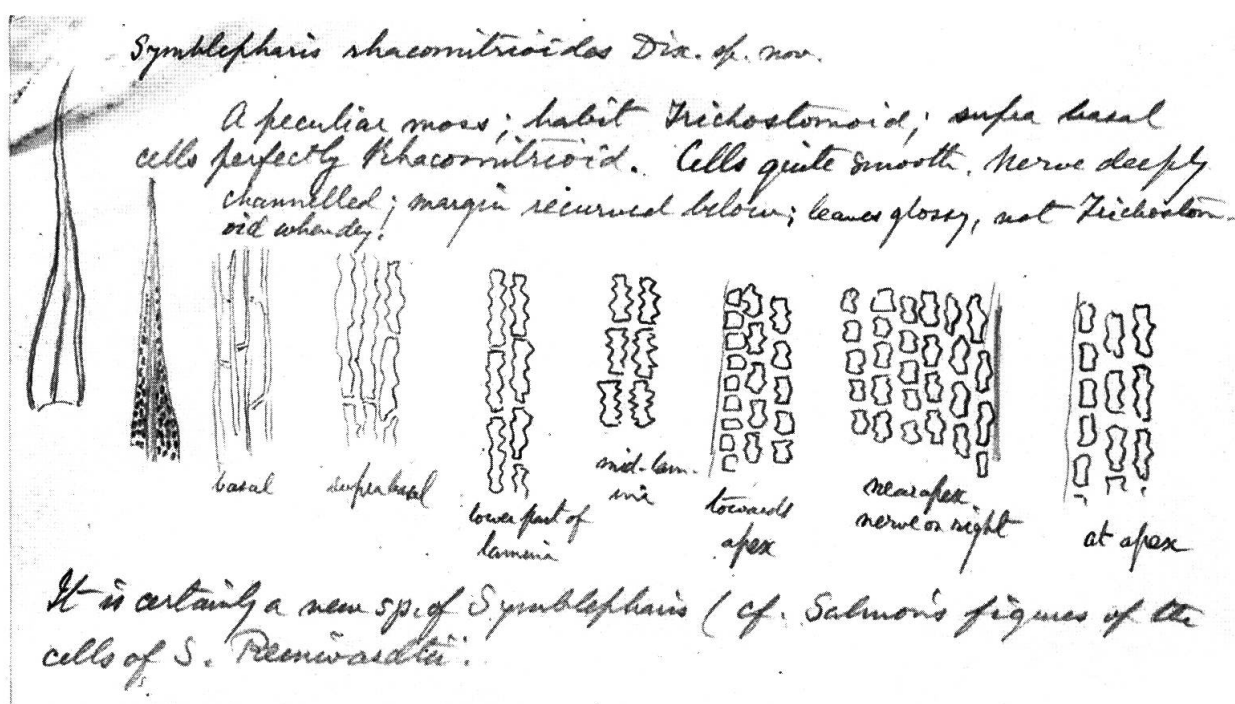 Symblepharis rhacomitrioides Dix. sp. nov.
A peculiar moss; habit Trichostomoid; supra basal
cells perfectly Rhacomitrioid. Cells quite smooth. Nerve deeply
channelled; margin recurved below; leaves glossy, not Trichostom-
oid when dry.
basal
suprabasal
lower part of
lamina
mid-lam-
ina
towards
apex
near apex
nerve on right
at apex
It is certainly a new sp. of Symblepharis (cf. Salmon's figures of the
cells of S. Reinwardtii.